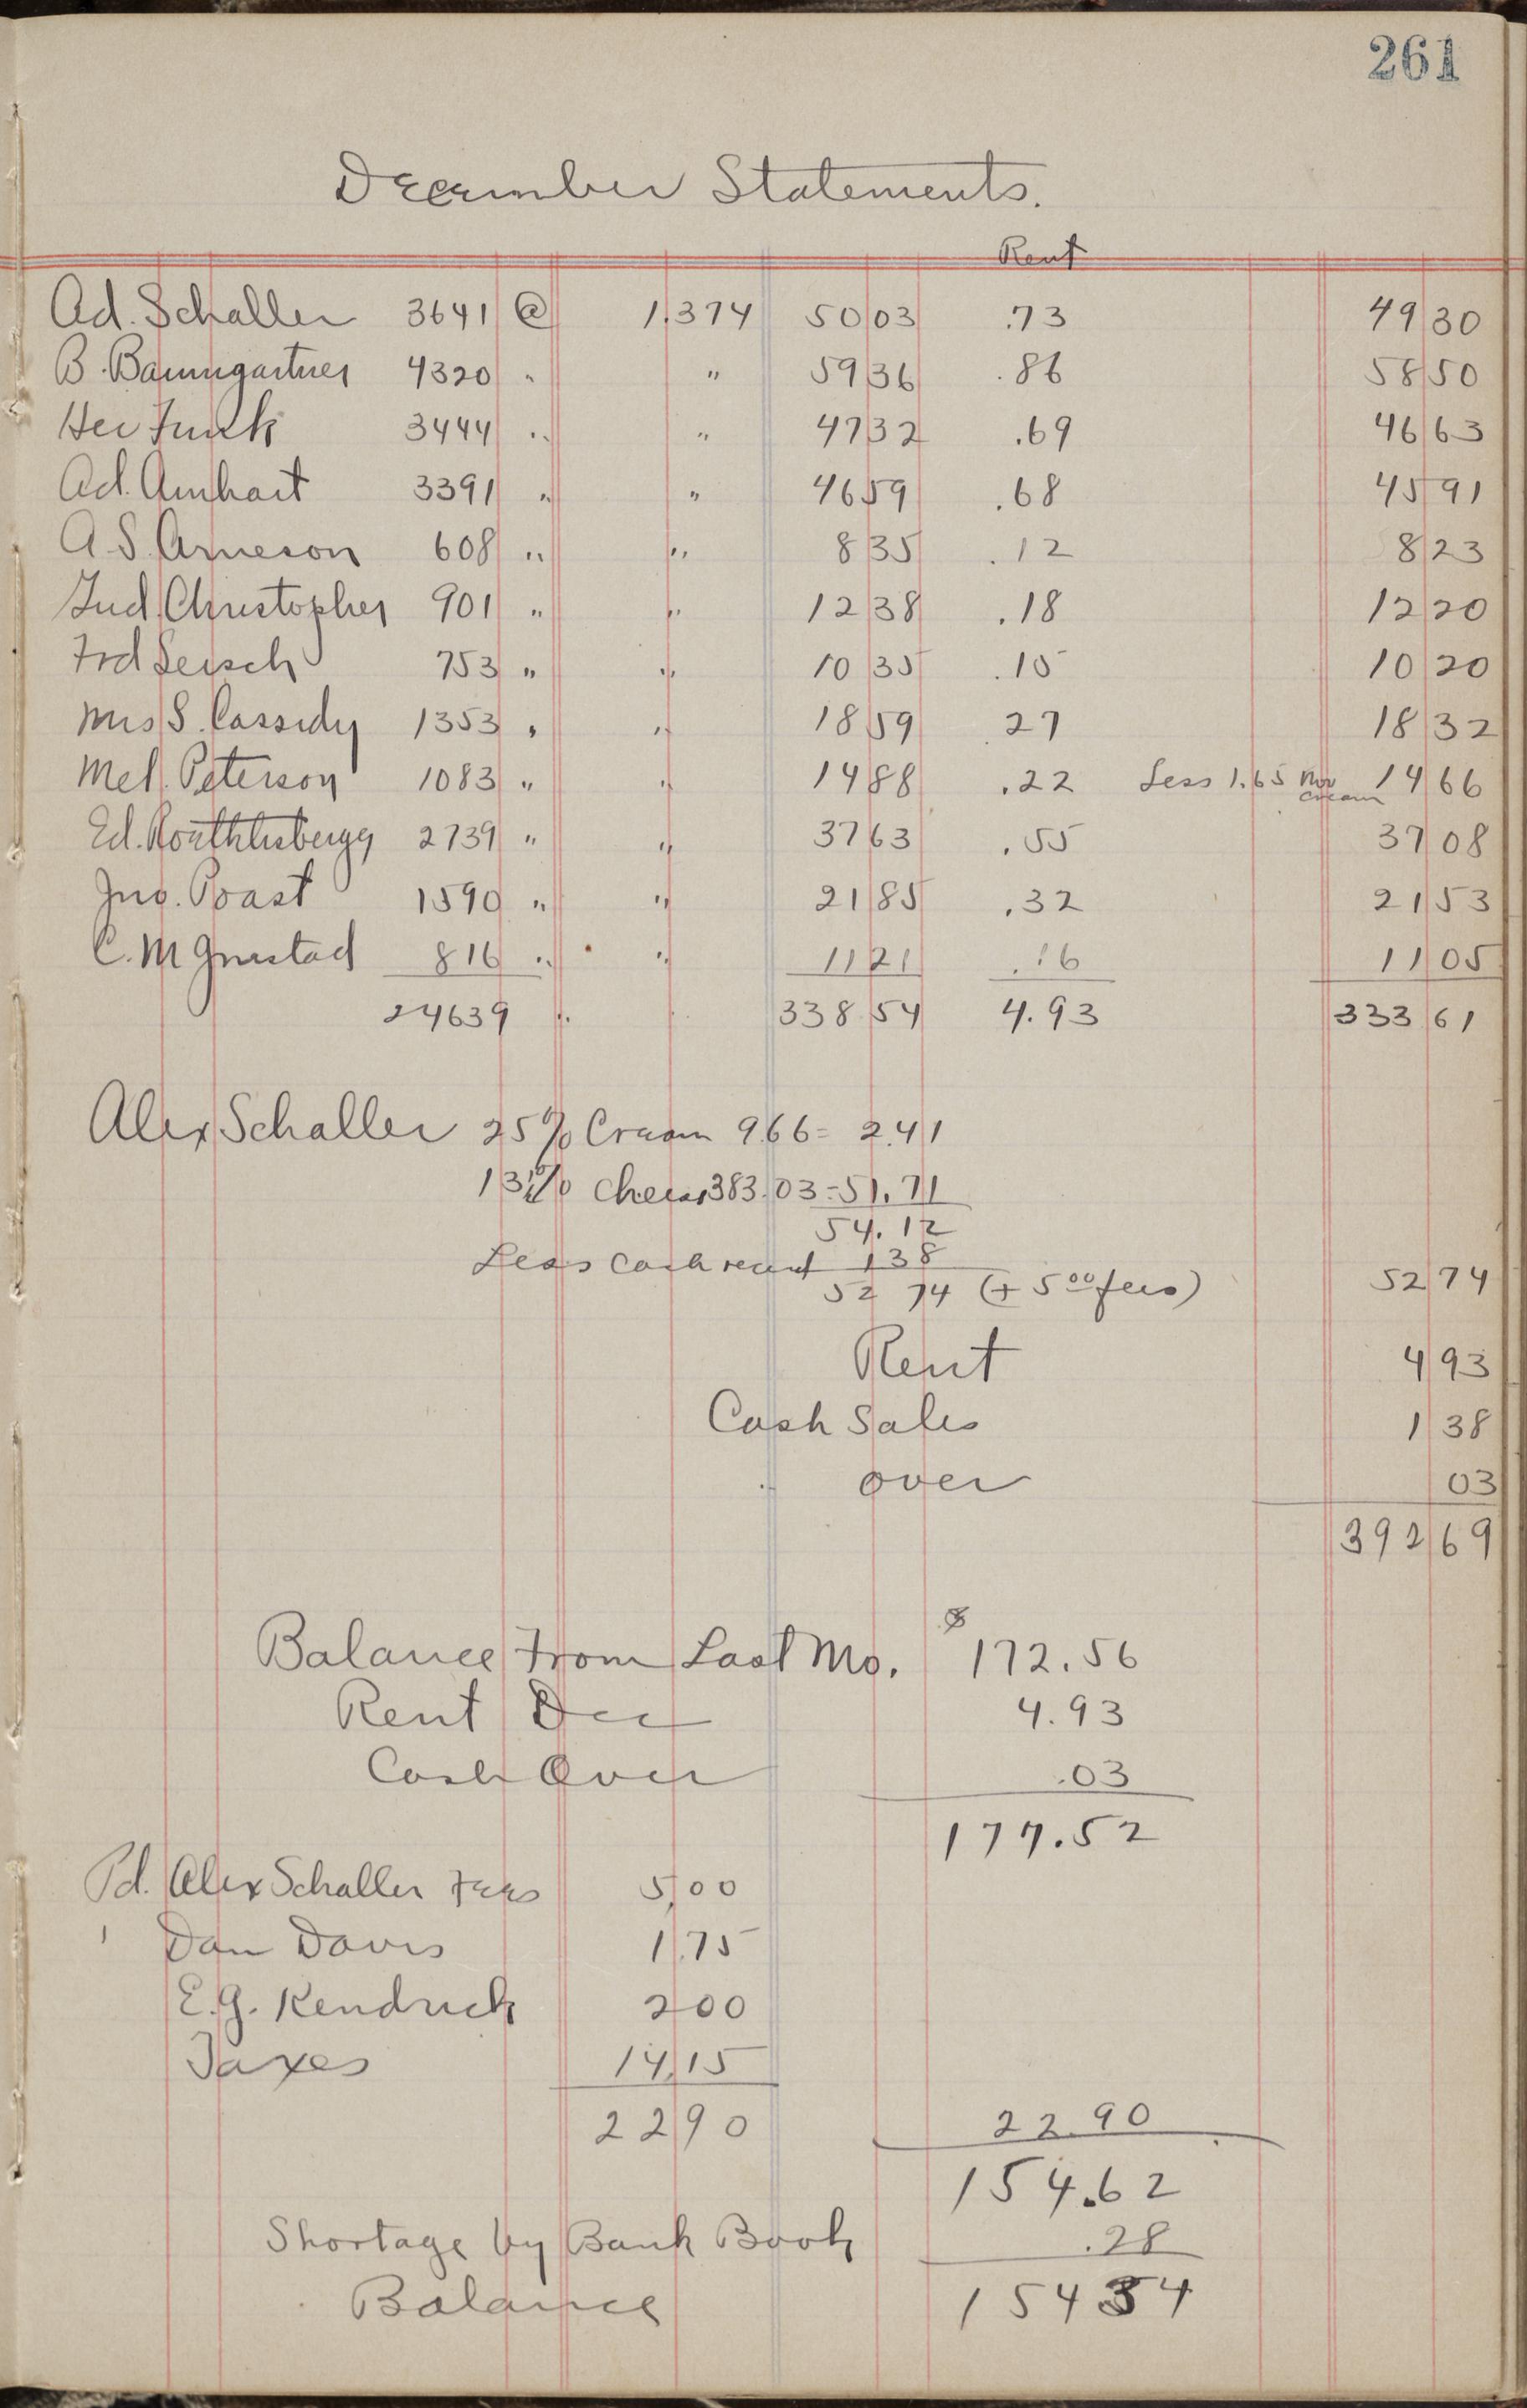 261
December Statements.
Rent
Ad. Schaller 3641 @ 1.374 50 03 .73 49 30
B. Baumgartner 4320 " " 59 36 .86 58 50
Her Funk 3444 " " 47 32 .69 46 63
Ad. Amhart 3391 " " 46 59 .68 45 91
A.S. Arneson 608 " " 8 35 .12 8 23
Jud. Christopher 901 " " 12 38 .18 12 20
Frd Leisch 753 " " 10 35 .15 10 20
Mrs S. Cassidy 1353 " " 18 59 27 18 32
Mel. Peterson 1083 " " 14 88 .22 Less 1.65 Nov cream 14 66
Ed. 2739 " " 37 63 .55 37 08
Jno. Poast 1590 " " 21 85 .32 21 53
C. M 816 " " 11 21 .16 11 05
24639 " 338 54 4.93 333 61
Alex Schaller 25% Cream 9.66 = 2.41
13½% Cheese 383.03 = 51.71
54.12
Less cash recd 1 38
52 74 (+ 5 00 fees) 52 74
Rent 4 93
Cash Sales 1 38
over 03
392 69
Balance From Last Mo. $ 172.56
Rent Dec 4.93
Cash Over .03
177.52
Pd. Alex Schaller Fees 5.00
" Dan Davis 1.75
E.G. Kendrick 2 00
Taxes 14.15
22 90 22.90
154.62
Shortage by Bank Book .28
Balance 154 34